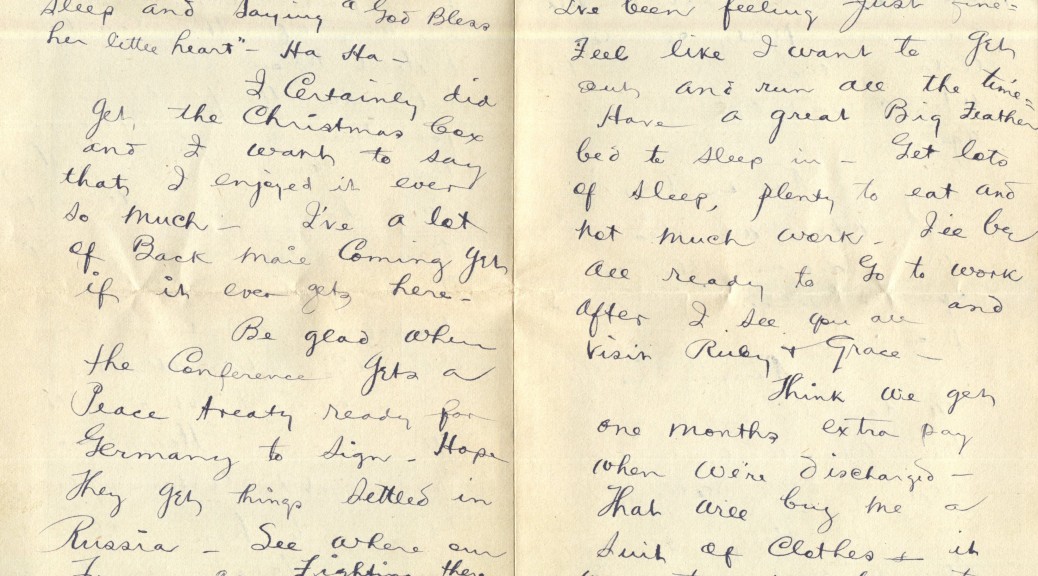 sleep and saying "God Bless
her little heart" - Ha Ha -
I Certainly did
get, the Christmas box
and I want to say
that I enjoyed it ever
so much - I've a lot
of Back mail Coming yet
if it ever gets here -
Be glad when
the Conference gets a
Peace treaty ready for
Germany to sign - Hope
They get things settled in
Russia - See where our
Fighting there
I've been feeling just fine -
Feel like I want to get
out and run all the time -
Have a great Big Feather
bed to sleep in - Get lots
of sleep, plenty to eat and
not much work - I'll be
all ready to Go to work
after I see you all and
visit Ruby + Grace -
Think we get
one months extra pay
when we're discharged -
That will buy me a
Suit of Clothes + it